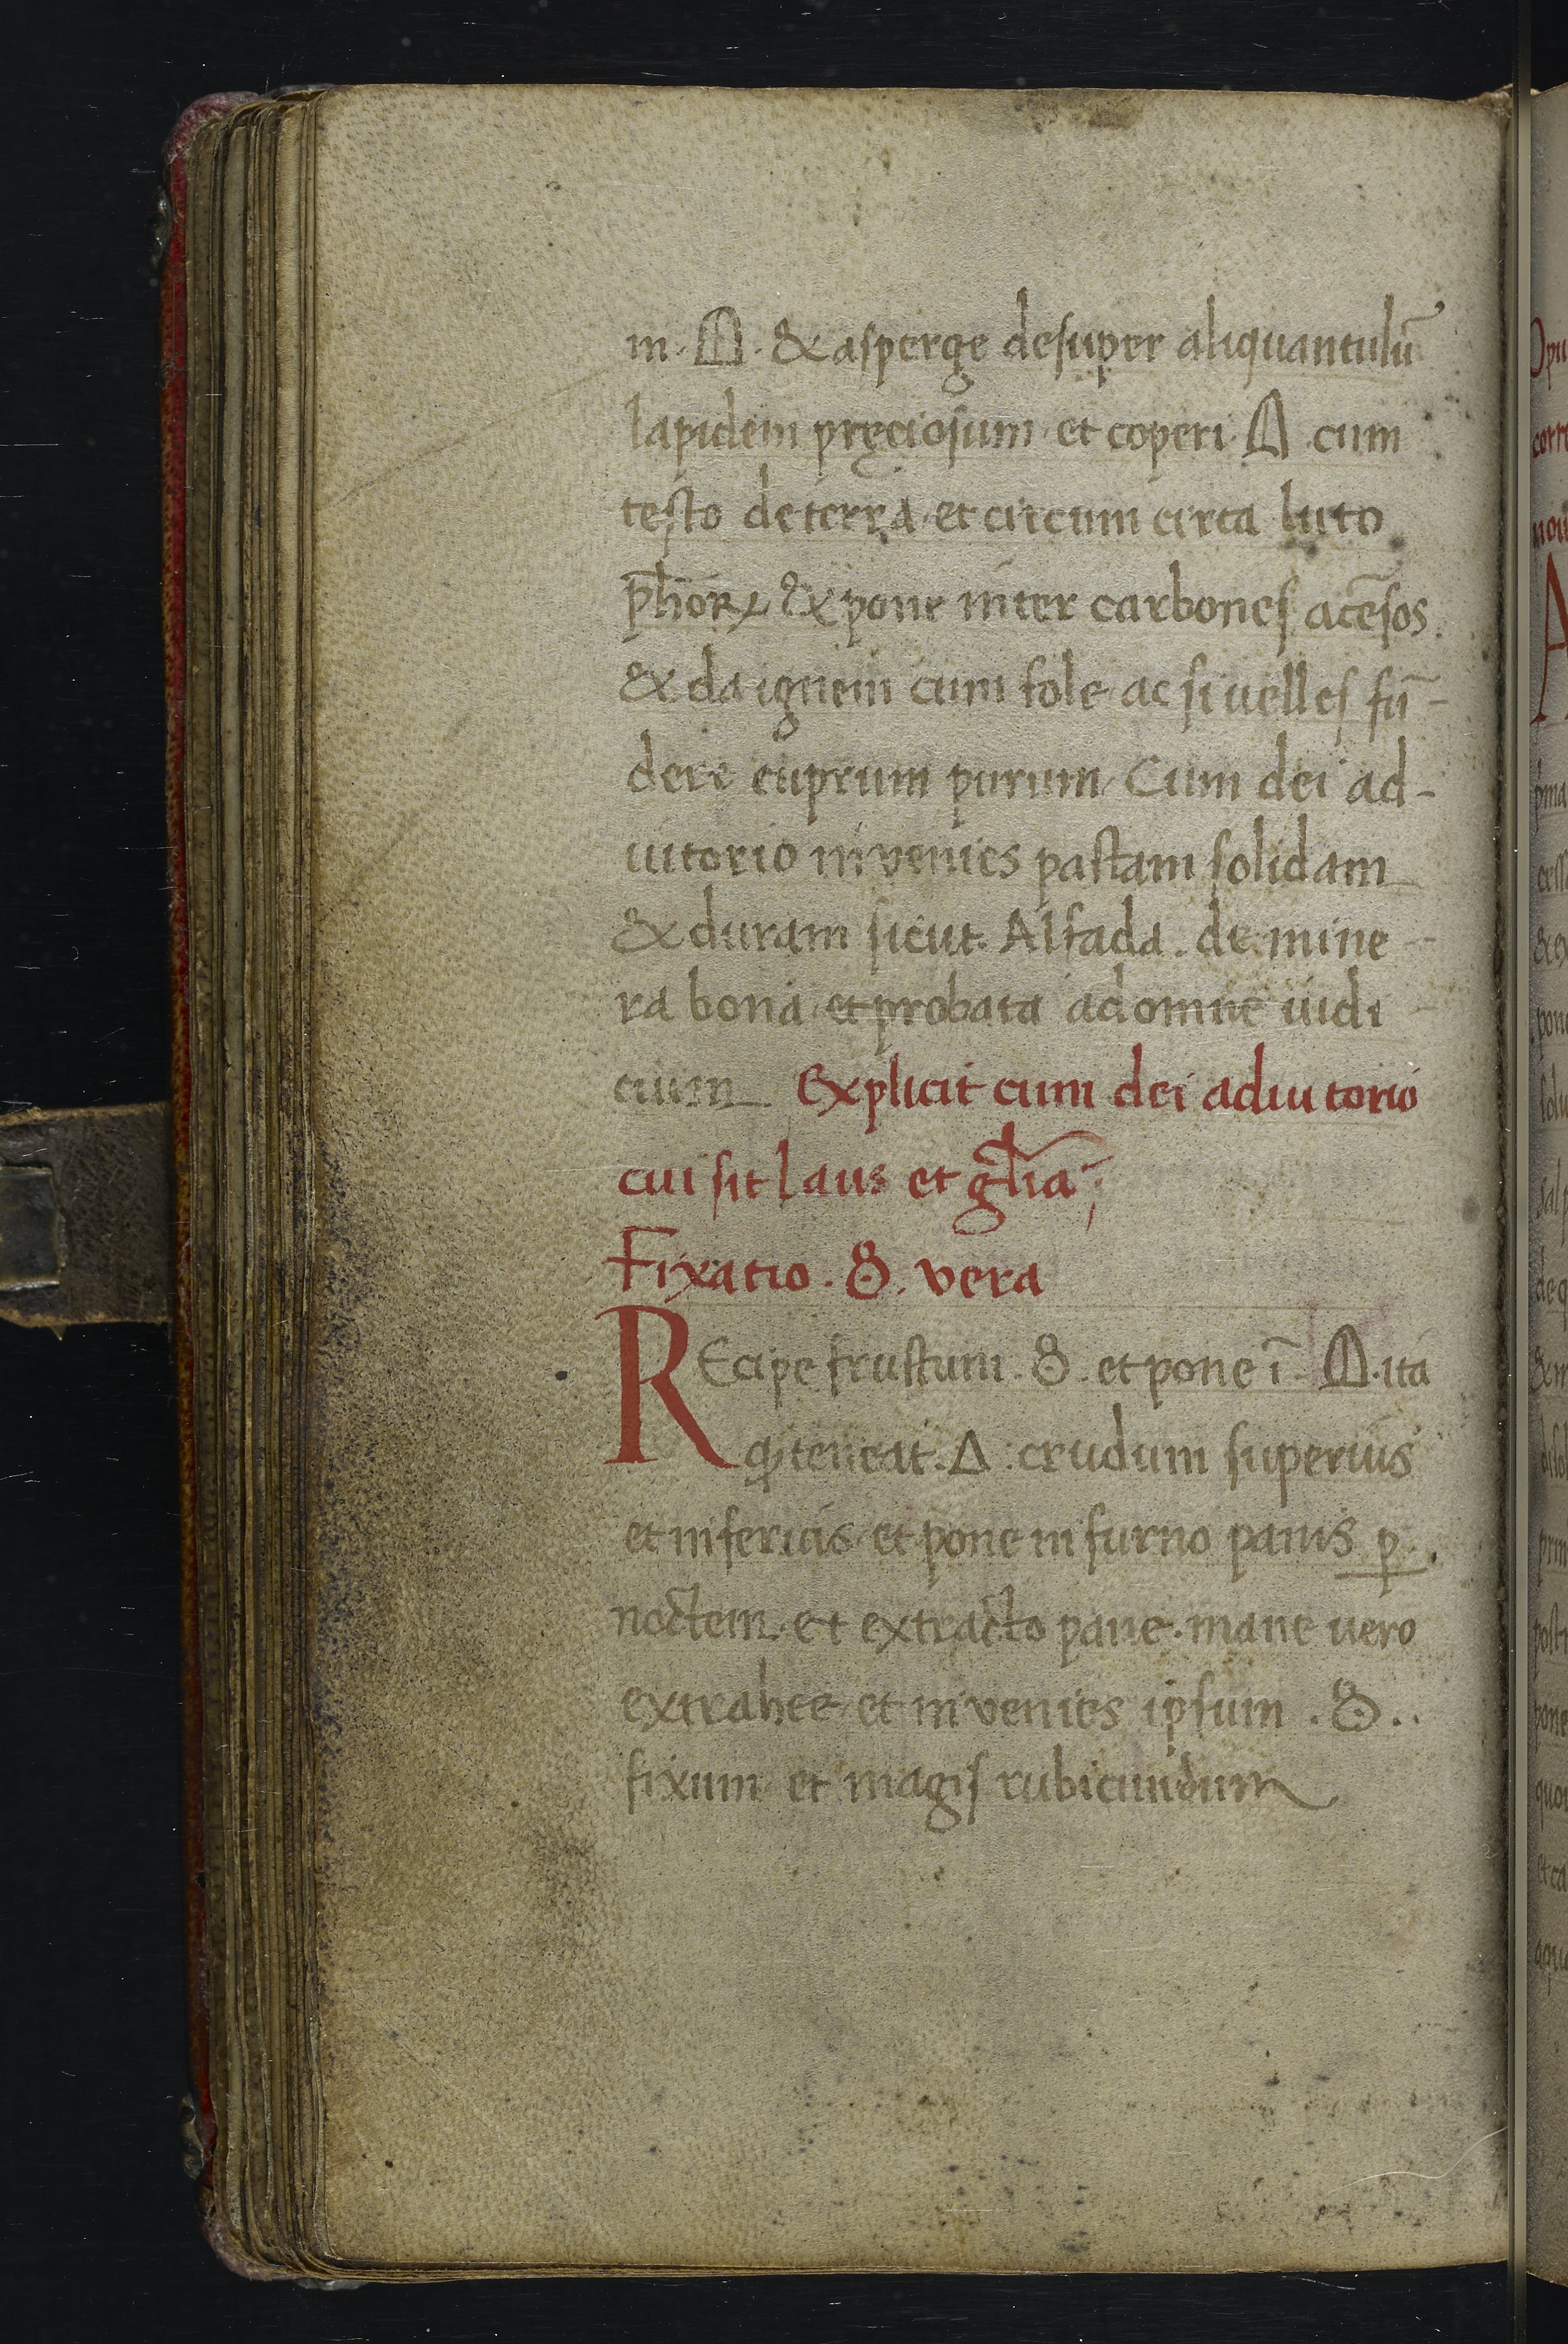 in · 𐌃 · & asperge desuper aliquantulū
lapidem pręciosum et coperi · 𐌃 · cum
testo de terra et circum circa luto
ph̄orꝝ & pone inter carbones acēsos
& da ignem cum fole ac si uelles fū-
dere cuprum purum Cum dei ad-
iutorio invenies pastam solidam
& duram sicut Alfada . de mine-
ra bona et probata ad omne iudi-
cium Explicit cum dei adiutorio
cui sit laus et gl̄ia ;
Fixatio . 8 . vera
REcipe frustum . 8 . et pone ī . 𐌃 . ita
ꝙ teneat . Δ . crudum superius
et inferius et pone in furno panis ꝑ
noctem et extracto pane . mane vero
extrahee et invenies ipsum . 8 . .
fixum et magis rubicundum
Opu
A